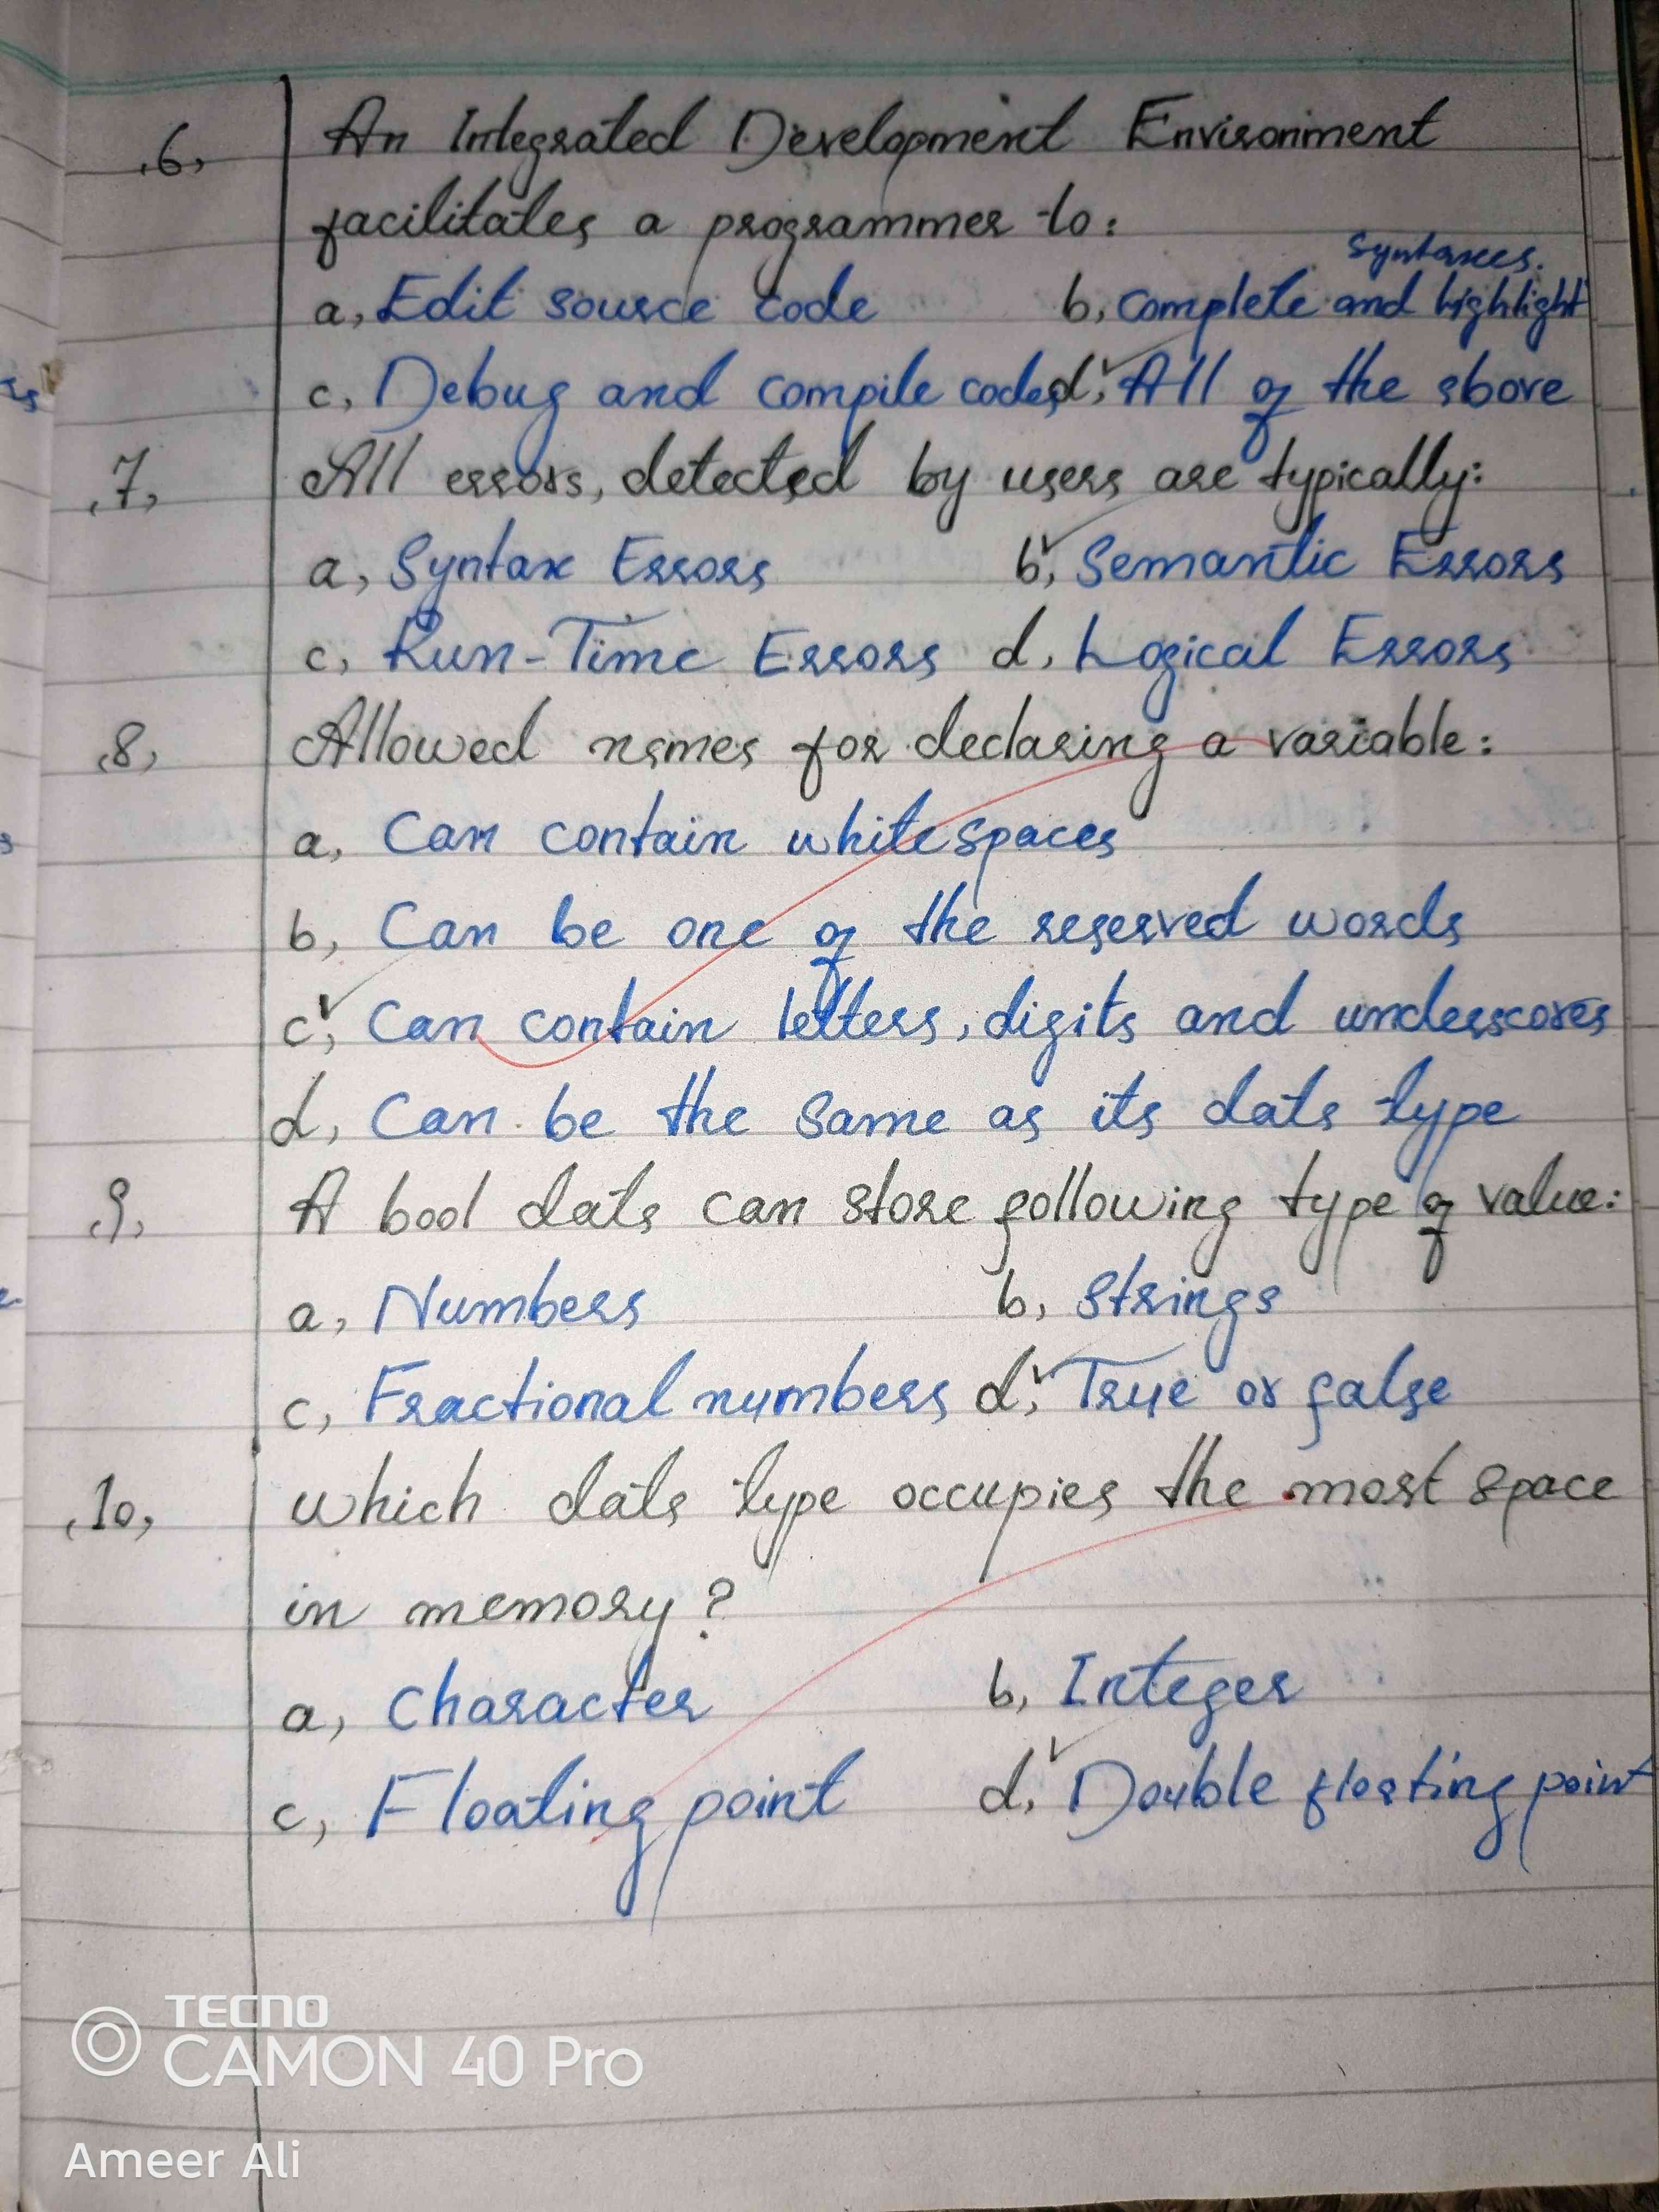 ,6, An Integrated Development Environment
facilitates a programmer to:
syntaxes.
a, Edit source code b, Complete and highlight
c, Debug and compile codes d, All of the above
,7, All errors, detected by users are typically:
a, Syntax Errors b, Semantic Errors
c, Run-Time Errors d, Logical Errors
,8, Allowed names for declaring a variable:
a, Can contain whitespaces
b, Can be one of the reserved words
c, Can contain letters, digits and underscores
d, Can be the same as its data type
,9, A bool data can store following type of value:
a, Numbers b, Strings
c, Fractional numbers d, True or false
,10, which data type occupies the most space
in memory?
a, Character b, Integer
c, Floating point d, Double floating point
TECNO
CAMON 40 Pro
Ameer Ali